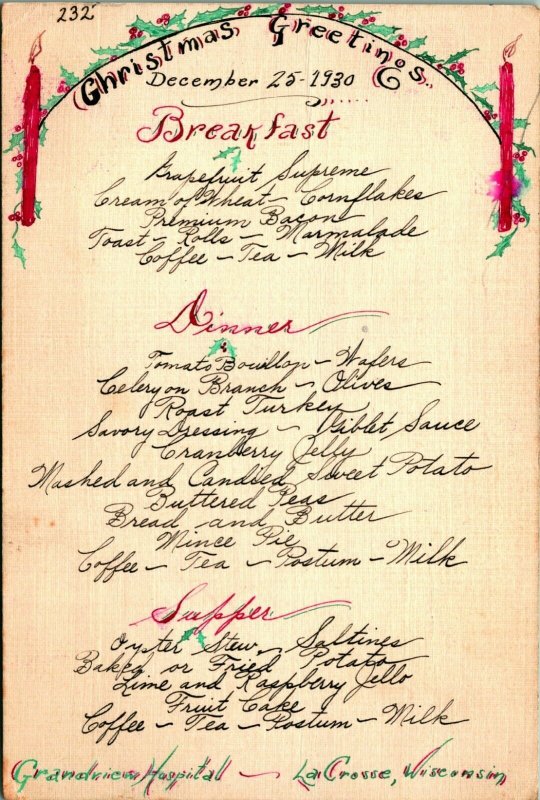 232
Christmas Greetings
December 25-1930
Breakfast
Grapefruit Supreme
Cream of Wheat - Cornflakes
Premium Bacon
Toast - Rolls - Marmalade
Coffee - Tea - Milk
Dinner
Tomato Bouillon - Wafers
Celery on Branch - Olives
Roast Turkey
Savory Dressing - Giblet Sauce
Cranberry Jelly
Mashed and Candied Sweet Potato
Buttered Peas
Bread and Butter
Mince Pie
Coffee - Tea - Postum - Milk
Supper
Oyster Stew, Saltines
Baked or Fried Potato
Lime and Raspberry Jello
Fruit Cake
Coffee - Tea - Postum - Milk
Grandview Hospital - La Crosse, Wisconsin